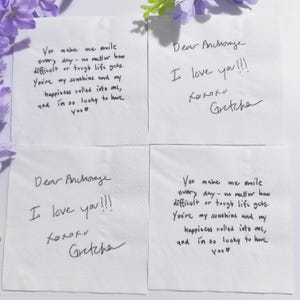 You make me smile
every day - no matter how
difficult or tough life gets.
You're my sunshine and my
happiness rolled into one,
and i'm so lucky to have
you♥
Dear Anchorage
I love you!!!
xoxoxo
Gretchen
Dear Anchorage
I love you!!!
xoxoxo
Gretchen
You make me smile
every day - no matter how
difficult or tough life gets.
You're my sunshine and my
happiness rolled into one,
and i'm so lucky to have
you♥